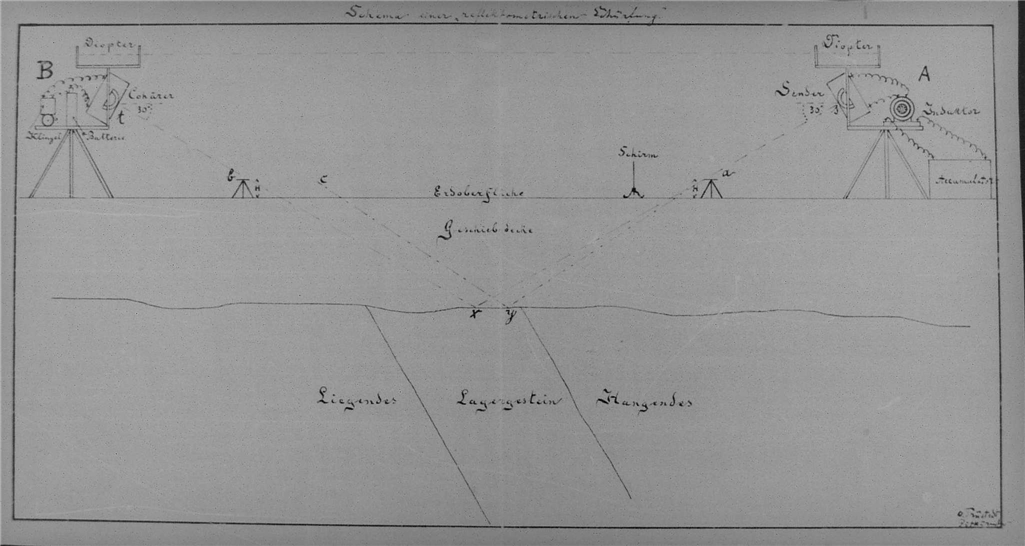 Schema einer „reflektometrischen Schürfung"
Diopter
Diopter
B
A
Cohärer
30°
t
Klingel
Batterie
Sender
30°
3
Induktor
Accumulator
b
H
c
Schirm
H
a
Erdoberfläche
Geschiebdecke
x
y
Liegendes
Lagergestein
Hangendes